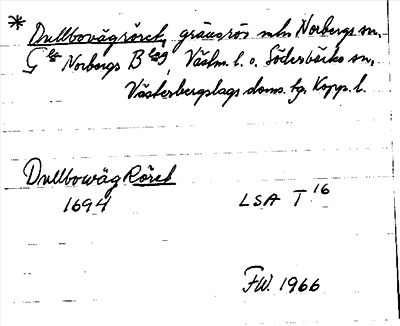 * Dullbovägröret, gränsrös mln Norbergs sn,
Gla Norbergs Blag, Västm. l. o. Söderbärke sn,
Västerbergslags doms. tg, Kopp. l.
Dullbowäg Röret
1694 LSA T 16
FW. 1966